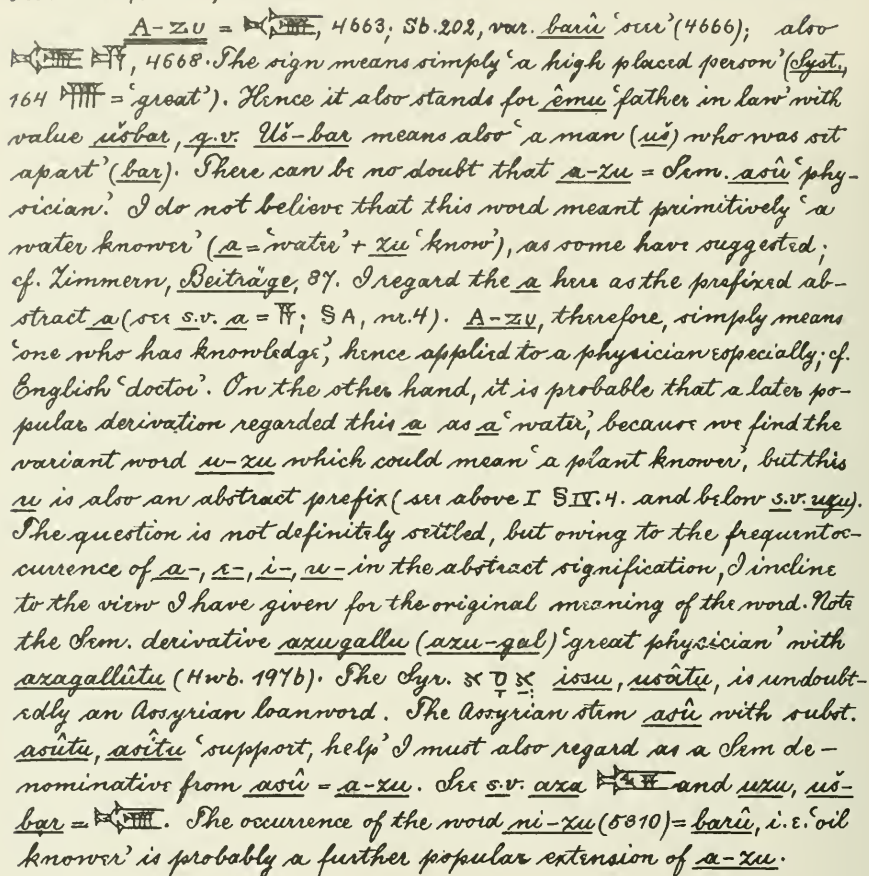 A-zu = , 4663; Sb. 202, var. barû ‘seer’ (4666); also
, 4668. The sign means simply ‘a high placed person’ (Syst.,
164 = ‘great’). Hence it also stands for êmu ‘father in law’ with
value ušbar, q.v. Uš-bar means also ‘a man (uš) who was set
apart’ (bar). There can be no doubt that a-zu = Sem. asû ‘phy-
sician.’ I do not believe that this word meant primitively ‘a
water knower’ (a = ‘water’ + zu ‘know’), as some have suggested;
cf. Zimmern, Beiträge, 87. I regard the a here as the prefixed ab-
stract a (see s.v. a = 𒀀; § A, nr. 4). A-zu, therefore, simply means
‘one who has knowledge’, hence applied to a physician especially; cf.
English ‘doctor’. On the other hand, it is probable that a later po-
pular derivation regarded this a as a ‘water’, because we find the
variant word u-zu which could mean ‘a plant knower’, but this
u is also an abstract prefix (see above I § IV. 4. and below s.v. uzu).
The question is not definitely settled, but owing to the frequent oc-
currence of a-, e-, i-, u- in the abstract signification, I incline
to the view I have given for the original meaning of the word. Note
the Sem. derivative azugallu (azu-gal) ‘great physician’ with
azagallûtu (Hwb. 197b). The Syr. issu, usâtu, is undoubt-
edly an Assyrian loanword. The Assyrian stem asû with subst.
asûtu, asîtu ‘support, help’ I must also regard as a Sem de-
nominative from asû = a-zu. See s.v. aza and uzu, uš-
bar = . The occurrence of the word ni-zu (5310) = barû, i.e. ‘oil
knower’ is probably a further popular extension of a-zu.